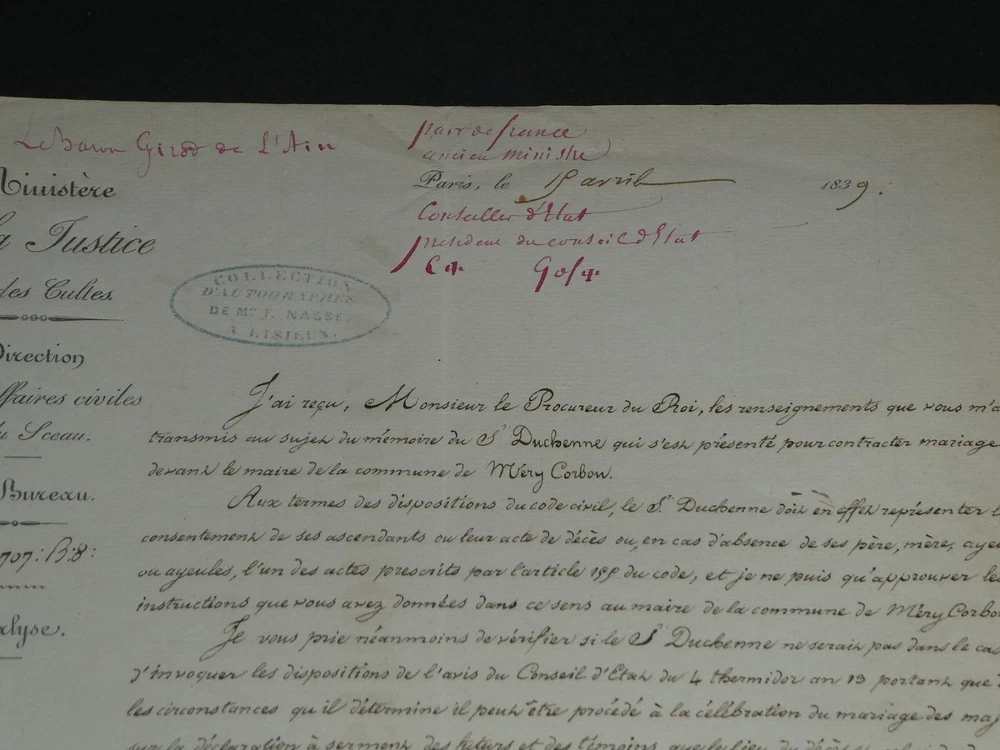 Le Baron Girod de L'Ain
pair de france
ancien ministre
Paris, le 15 avril 1839.
Conseiller d'Etat
president du conseil d'Etat
Ministère
la Justice
des Cultes.
COLLECTION
D'AUTOGRAPHES
DE Mr. J. NASSE.
A LISIEUX.
Direction
ffaires civiles
du Sceau.
Bureau.
707: B:8:
alyse.
J'ai reçu, Monsieur le Procureur du Roi, les renseignements que vous m'a
transmis au sujet du mémoire du Sr Duchenne qui s'est présenté pour contracter mariage
devant le maire de la commune de Méry Corbon.
Aux termes des dispositions du code civil, le Sr. Duchenne doit en effet représenter l
consentement de ses ascendants ou leur acte de décès ou, en cas d'absence de ses père, mère, ayeu
ou ayeules, l'un des actes prescrits par l'article 155 du code, et je ne puis qu'approuver les
instructions que vous avez données dans ce sens au maire de la commune de Méry Corbon
Je vous prie néanmoins de vérifier si le Sr Duchenne ne serait pas dans le cas
d'invoquer les dispositions de l'avis du Conseil d'Etat du 4 thermidor an 13 portant que
les circonstances qu'il détermine il peut être procédé à la célébration du mariage des maj
sur la déclaration à serment des futurs et des témoins que le lieu du décès